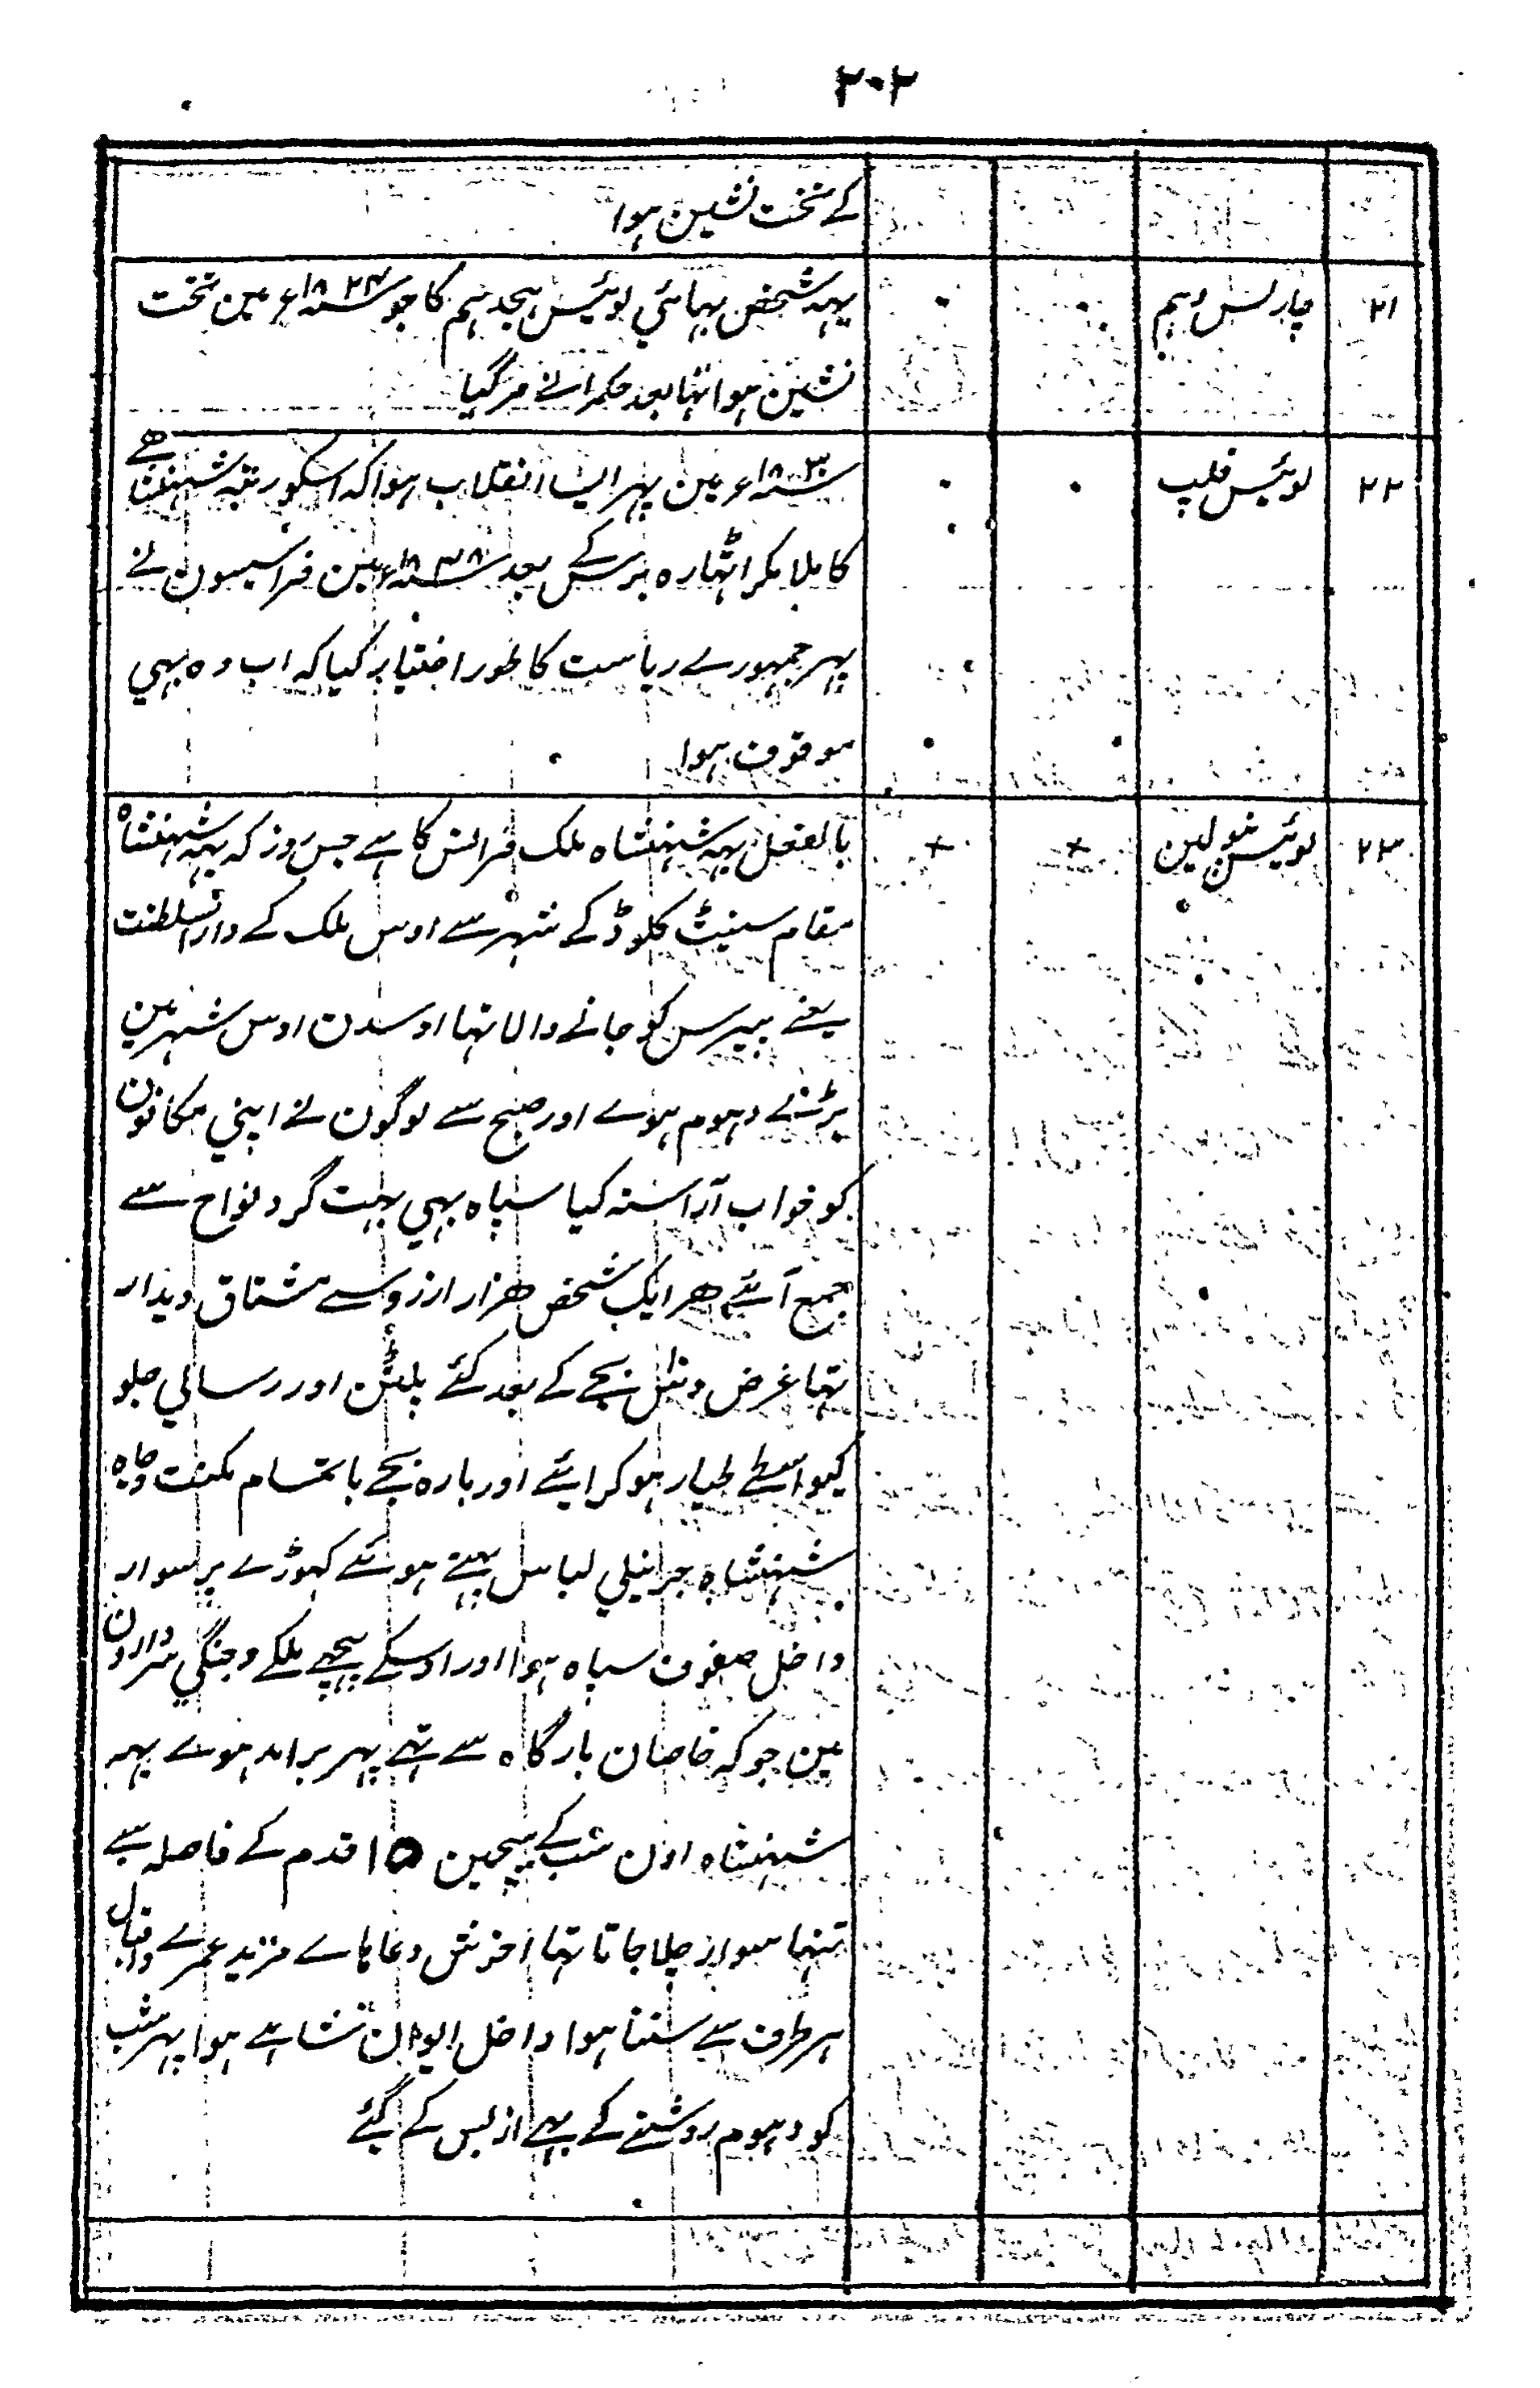 ۲۰۲
کے تخت نشین ہوا
۲۱ چارلس دہم ۰ ۰ یہہ شخص بہائي لوئیس ہجدہم کا جو سنہ ۱۸۲۴ء مین تخت
نشین ہوا تہا بعد حکمرانے مرگیا
۲۲ لوئیس فلپ ۰ ۰ سنہ ۱۸۳۰ء مین پہر ایسا انقلاب ہوا کہ اسکو رتبہ شہنشاہے
کا ملا مگر اٹہارہ برس کے بعد سنہ ۱۸۴۸ء مین فراسیسون نے
پہر جمہورے ریاست کا طور اختیار کیا کہ اب وہ بہي
موقوف ہوا
۲۳ لوئیس نپولین × × بالفعل یہہ شہنشاہ ملک فرانس کا ہے جس روز کہ یہہ شہنشاہ
مقام سینٹ کلوڈ کے شہر سے اوس ملک کے دارالسلطنت
یعنے پیرس کو جانے والا تہا اوسدن اوس شہر مین
بڑے دہوم ہوے اور صبح سے لوگون نے اپني مکانون
کو خواب آراستہ کیا سپاہ بہي بہت گرد نواح سے
جمع آئے ہر ایک شخص ہزار ارزو سے مشتاق دیدار
تہا غرض دس بجے کے بعد کئے پلٹن اور رسالي جلو
کیواسطے طیار ہوکر ائے اور بارہ بجے باتمام مکنت وجاہ
شہنشاہ جرنیلي لباس پہنے ہوئے کہوڑے پر سوار
داخل صفوف سپاہ ہوا اور اوسکے پیچہے ملکے وجنگي سردارون
مین جوکہ خاصان بارگاہ سے تہے پہر برامد ہوے یہہ
شہنشاہ اون سب کے بیچمین ۱۵ قدم کے فاصلہ سے
تنہا سوار چلا جاتا تہا اخرش دعاہاے مزید عمرے واقبال
ہر طرف سے سنتا ہوا داخل ایوان شاہے ہوا پہر شب
کو دہوم روشنے کے بہے ازبس کے گئے